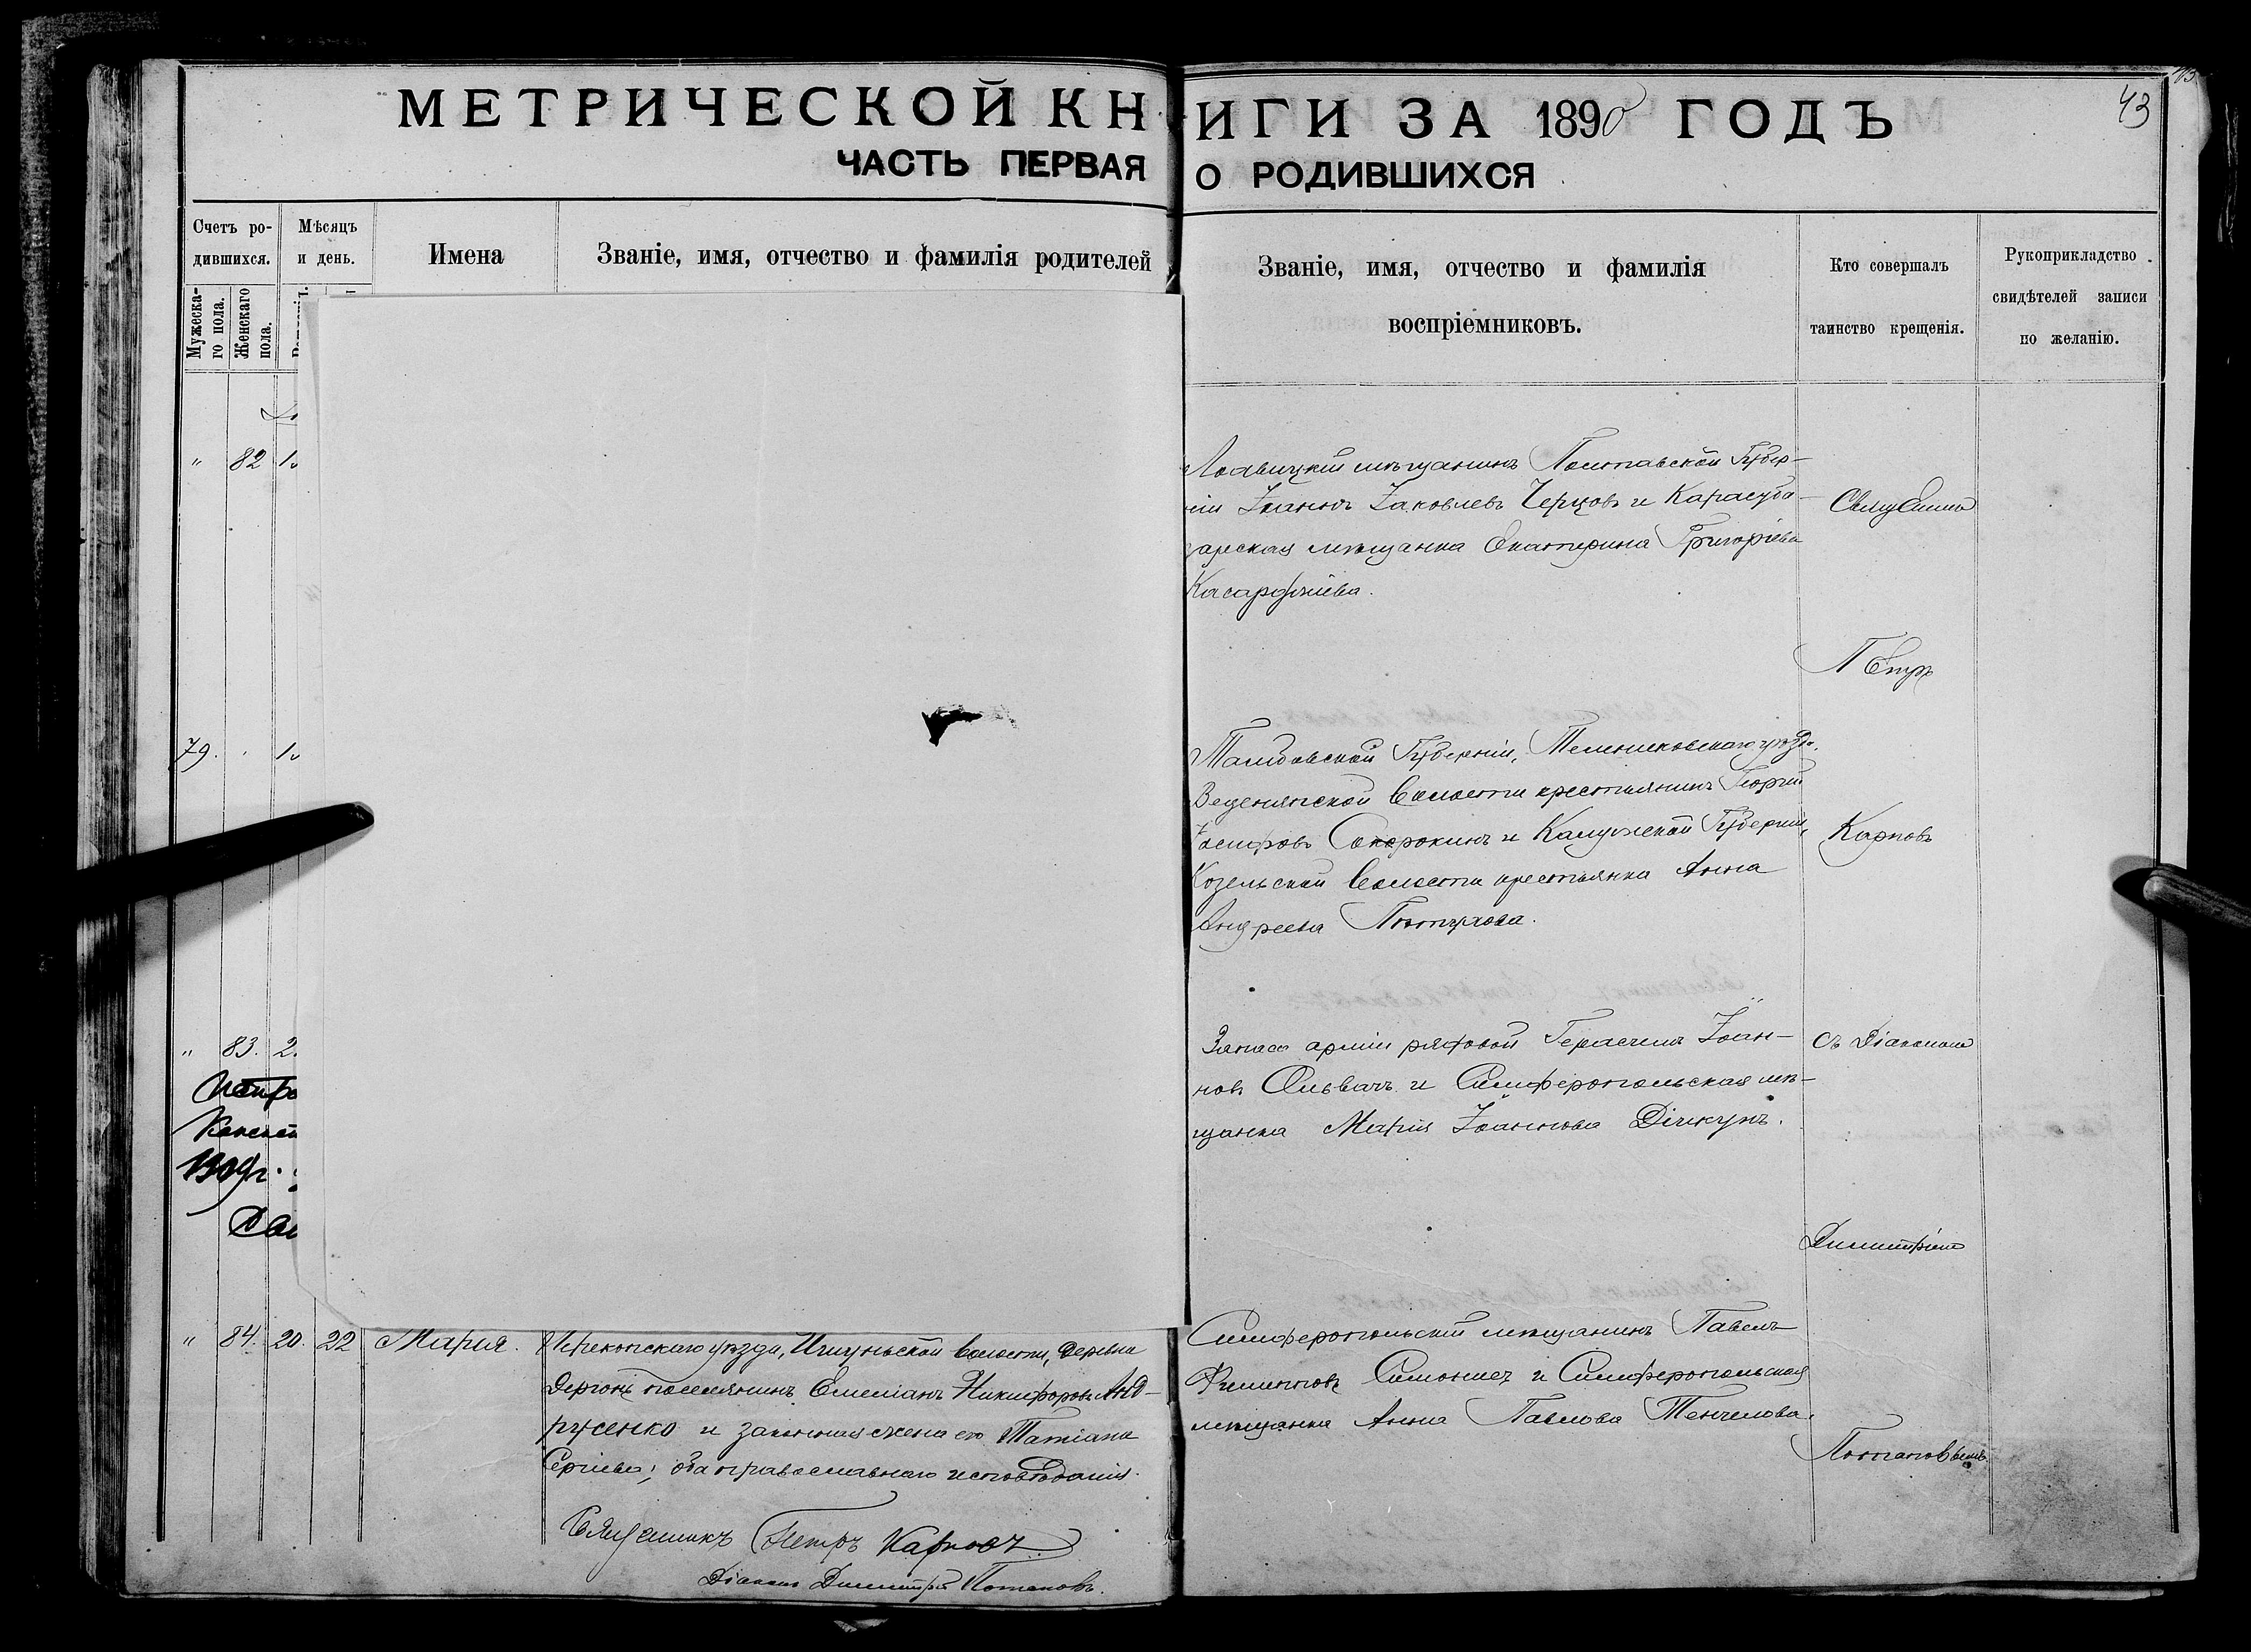 43
МЕТРИЧЕСКОЙ КНИГИ ЗА 1890 ГОДЪ
ЧАСТЬ ПЕРВАЯ О РОДИВШИХСЯ
Счетъ ро-
дившихся.
Мужеска-
го пола.
Женскаго
пола.
Мѣсяцъ
и день.
Имена
Званіе, имя, отчество и фамилія родителей
Званіе, имя, отчество и фамилія
воспріемниковъ.
Кто совершалъ
таинство крещенія.
Рукоприкладство
свидѣтелей записи
по желанію.
" 82
мѣщанинъ Полтавской Губер-
ніи Іоаннъ Іаковлевъ Черцовъ и Карасуба-
зарская мѣщанка Екатерина Григоріева
Священ
Петръ
79.
Тамбовской Губерніи, Темниковскаго уѣзда
Веденяпской волости крестьянинъ Георгій
Іосифовъ Сокорокинъ и Калужской Губерніи,
Козельской волости крестьянка Анна
Андреева Пѣтухова.
Карповъ
" 83. 2
1909 г.
Запаса арміи рядовой Герасимъ Іоан-
новъ Ольвачъ и Симферопольская мѣ-
щанка Марія Іоаннова Дічкунъ.
съ Діакономъ
Димитріемъ
" 84. 20. 22 Марія.
Перекопскаго уѣзда, Ишуньской волости, деревни
поселянинъ Емеліанъ Никифоровъ Анд-
русенко и законная жена его Татіана
Сергіева; оба православнаго исповѣданія.
Симферопольскій мѣщанинъ Павелъ
Филипповъ Симонъ и Симферопольская
мѣщанка Анна Павлова Тенчелова.
Потаповымъ
Священникъ Петръ Карповъ
Діаконъ Димитрій Потаповъ.